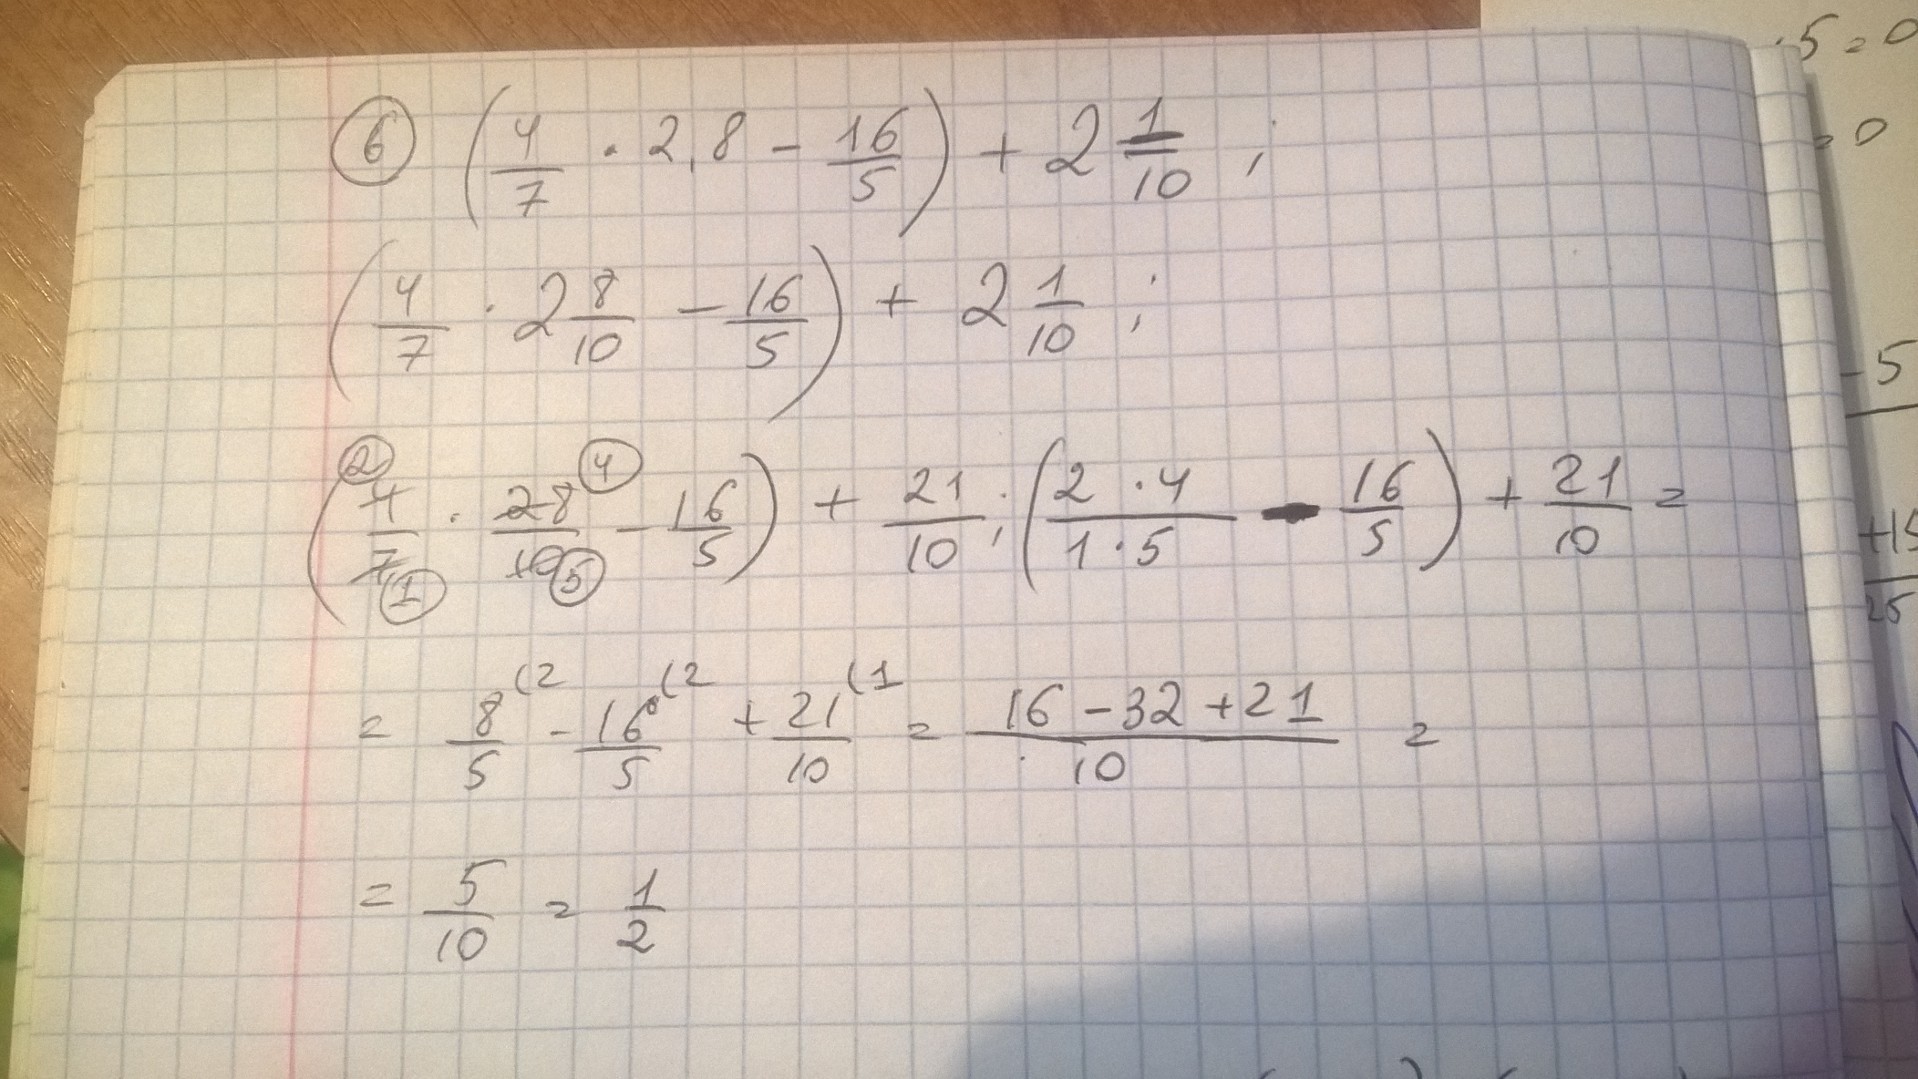 6 (4/7 · 2,8 - 16/5) + 2 1/10 ;
(4/7 · 2 8/10 - 16/5) + 2 1/10 ;
(4/7 · 28/10 - 16/5) + 21/10 ; (2 · 4 / 1 · 5 - 16/5) + 21/10 =
2 4
1 5
= 8/5 (2 - 16/5 (2 + 21/10 (1 = 16 - 32 + 21 / 10 =
= 5/10 = 1/2
· 5 = 0
= 0
- 5
+15
25